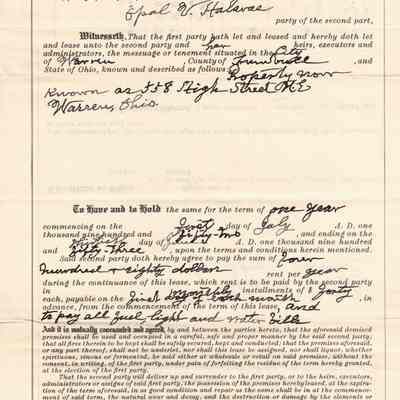 Opal V.
party of the second part,
Witnesseth, That the first party hath let and leased and hereby doth let
and lease unto the second party and her heirs, executors and
administrators, the messuage or tenement situated in the City
of Warren, County of Trumbull, and
State of Ohio, known and described as follows: Property now
Known as 558 High Street N.E.
Warren, Ohio.
To Have and to Hold the same for term of one year
commencing on the first day of July A. D. one
thousand nine hundred and fifty two, and ending on the
day of A. D. one thousand nine hundred
and fifty three, upon the terms and conditions herein mentioned.
Said second party doth hereby agree to pay the sum of Four
hundred & eighty dollars rent per year
during the continuance of this lease, which rent is to be paid by the second party
in monthly installments of $ forty
each, payable on the first of each month, in
advance, from the commencement of the term of this lease, and
to pay all fuel light and water bills
And it is mutually covenanted and agreed, by and between the parties hereto, that the aforesaid demised
premises shall be used and occupied in a careful, safe and proper manner by the said second party;
that all fires therein to be kept shall be safely secured, kept and conducted; that the premises aforesaid,
or any part thereof, shall not be underlet, nor shall this lease be assigned, nor shall liquor, whether
spirit, vinous or fermented, be sold either at wholesale or retail on said premises, without the
consent, in writing, of the first party, under pain of forfeiting the residue of the term hereby granted,
at the election of the first party.
That the second party will deliver up and surrender to the first party, or to the heirs, executors,
administrators or assigns of said first party, the possession of the premises hereby leased, at the expira-
tion of the term aforesaid, in as good condition and repair as the same shall be in at the commence-
ment of said term, the natural wear and decay, and the destruction or damage by the elements or